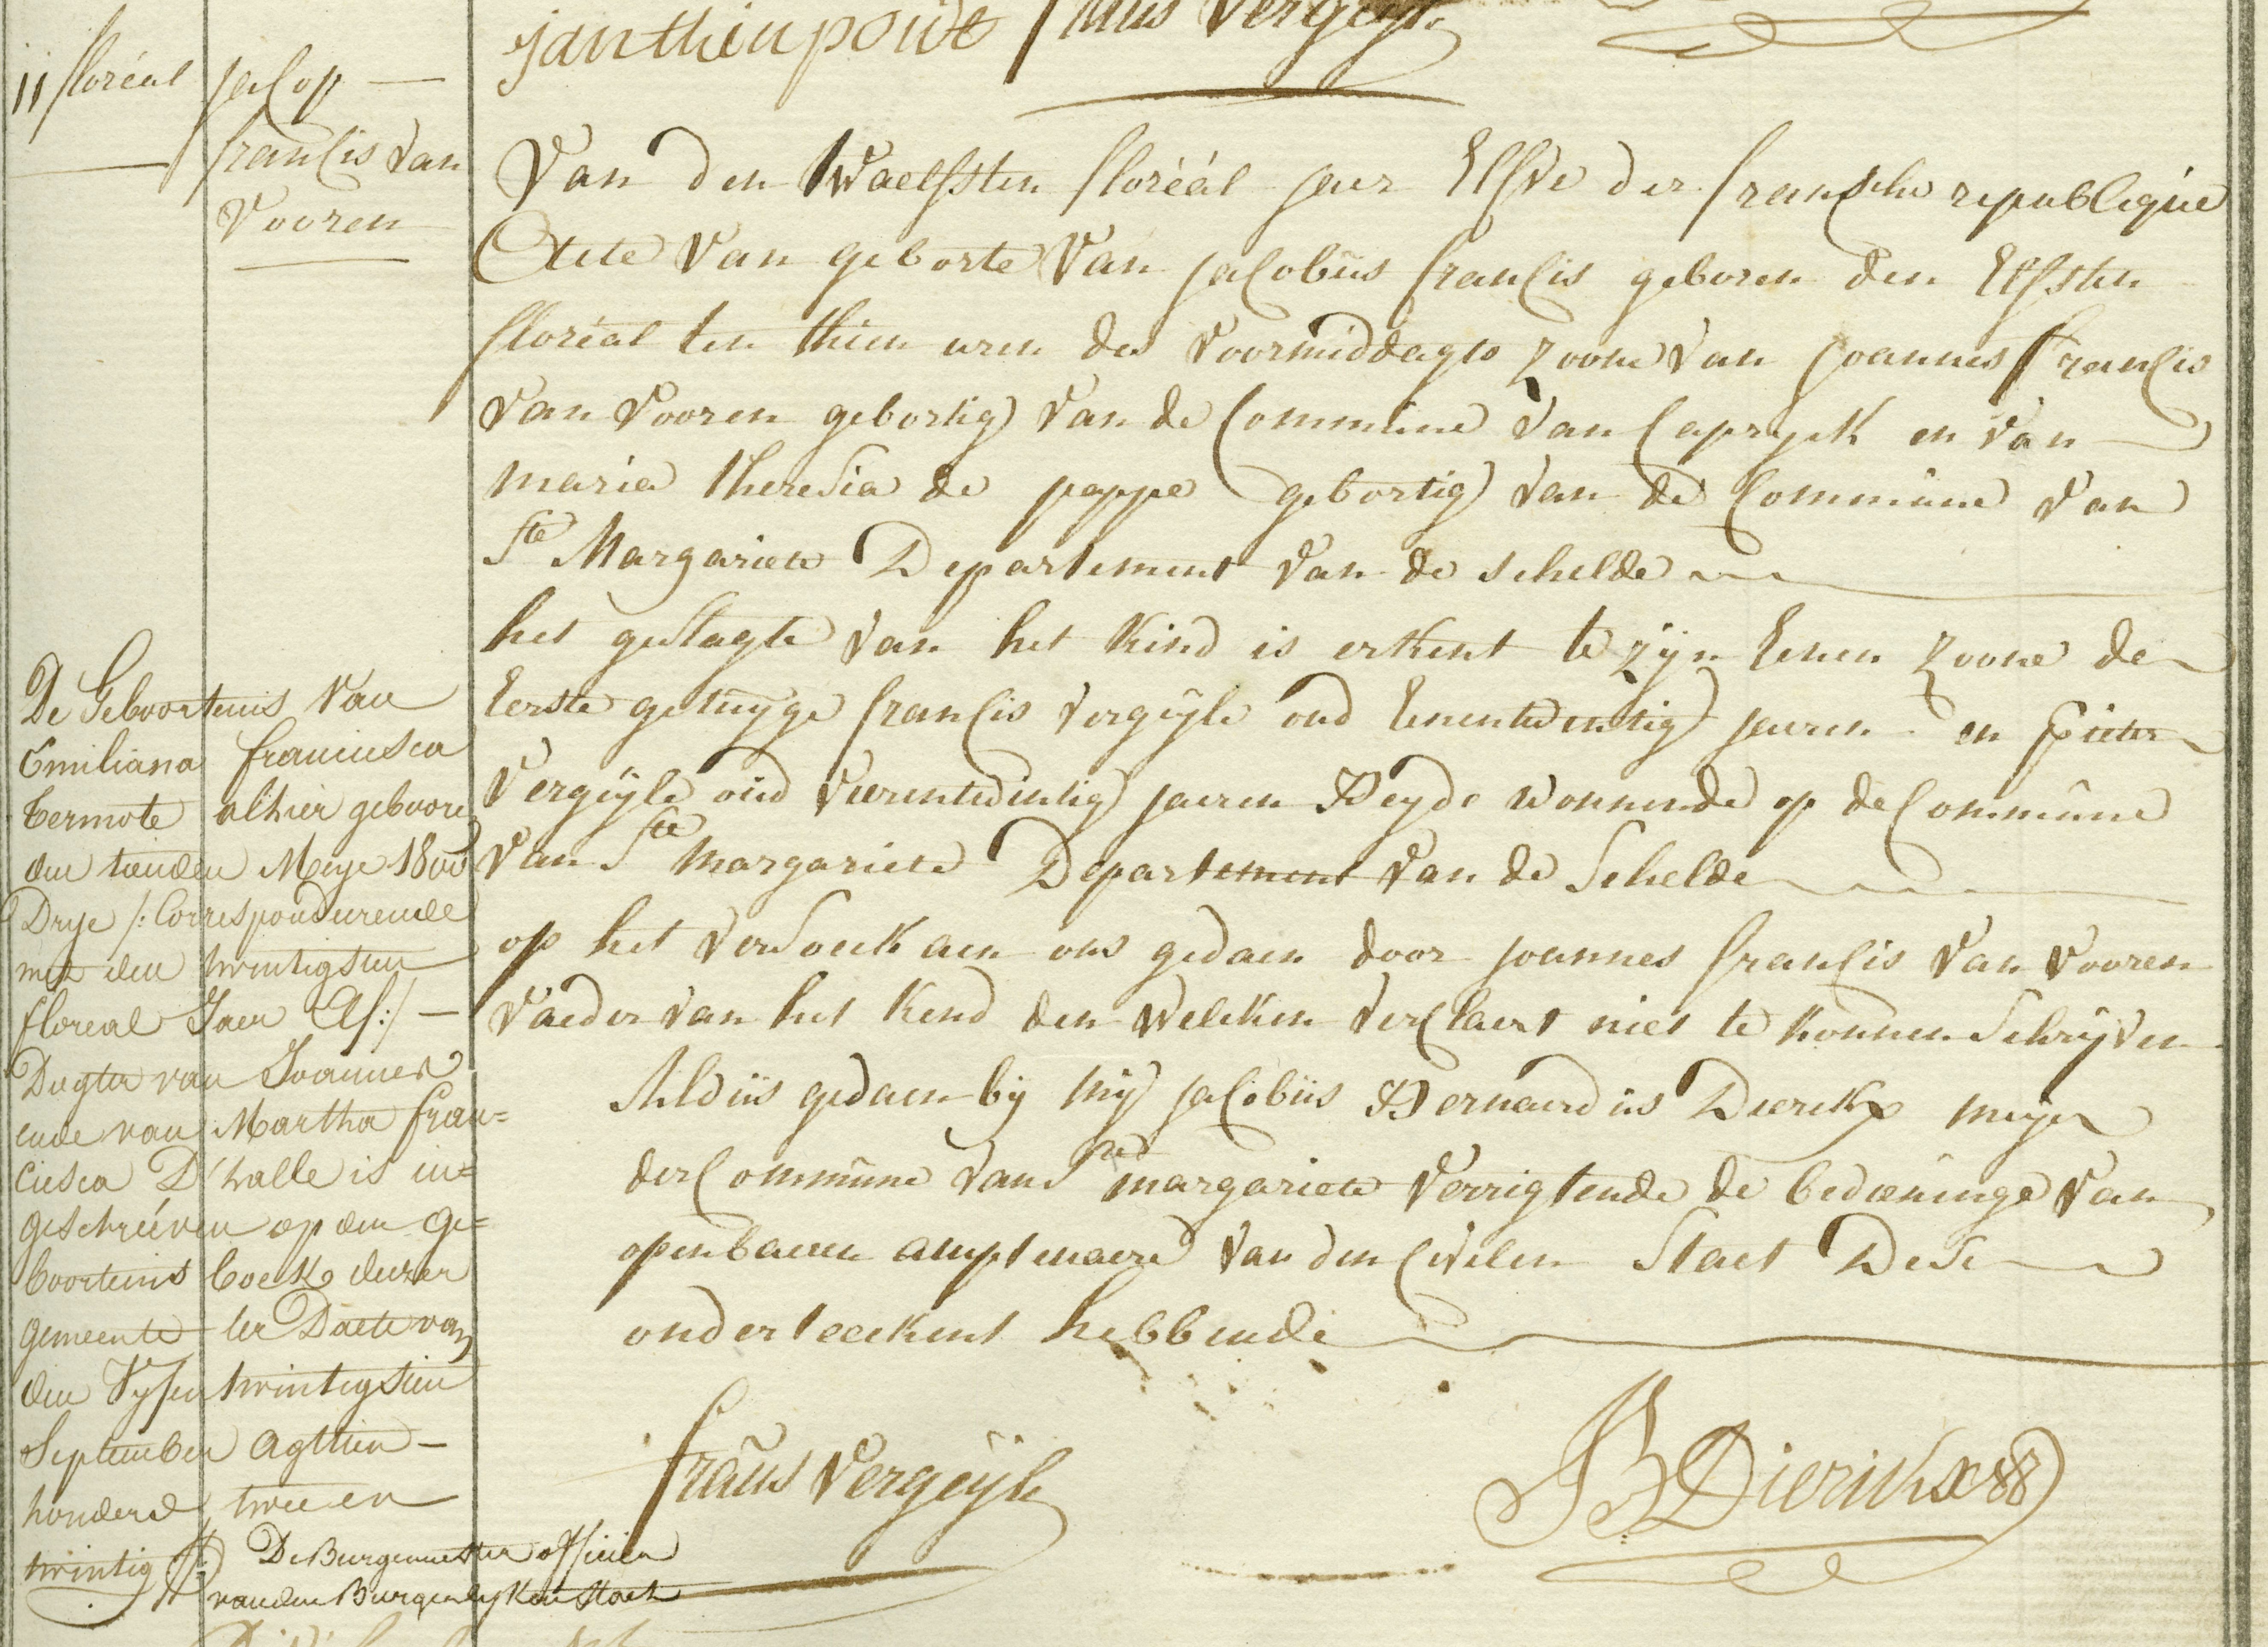 janthienpondt frans Vergeyle
11 floréal
jacop
francis van
Vooren
Van den twaelfsten floréal jaer Elfve der fransche republique
Acte van geborte van jacobus francis geboren den Elfsten
floréal ten thien uren des voormiddaghs zoone van joannes francis
van vooren gebortig van de Commune van Capryck en van
maria theresia de pappe gebortig van de Commune van
Ste Margariete Departement van de schelde
het geslagte van het kind is erkent te zijn Eenen zoone de
Eerste getuyge francis vergeyle oud Eenentwintig jaeren en pieter
Vergeyle oud vierentwintig jaeren Beyde wonnende op de Commune
van Ste margariete Departement van de Schelde
op het versoeck aen ons gedaen door joannes francis van vooren
vaeder van het kend den welcken verclaert niet te konnen schryven
Aldus gedaen by my jacobus Bernardus Dierckx meyer
der Commune van Ste margariete verrigtende de bedieninge van
openbaeren amptenaere van den civilen Staet Dese
onderteekent hebbende
frans Vergeyle
JB Dierickx
De Geboortenis van
Emiliana francisca
termote alhier gebooren
den tienden Meye 1800
Drye /: Corresponderende
met den twintigsten
floreal Jaer Elf :/ —
Dogter van Joannes
ende van Martha fran=
cisca D'halle is in=
geschreéven op den ge=
boortenis boek deezer
gemeente ter Daete van
den Vyfentwintigsten
September agthien-
honderd, twee en
twintig
De Burgemeester officier
van den Burgerlyken Staet